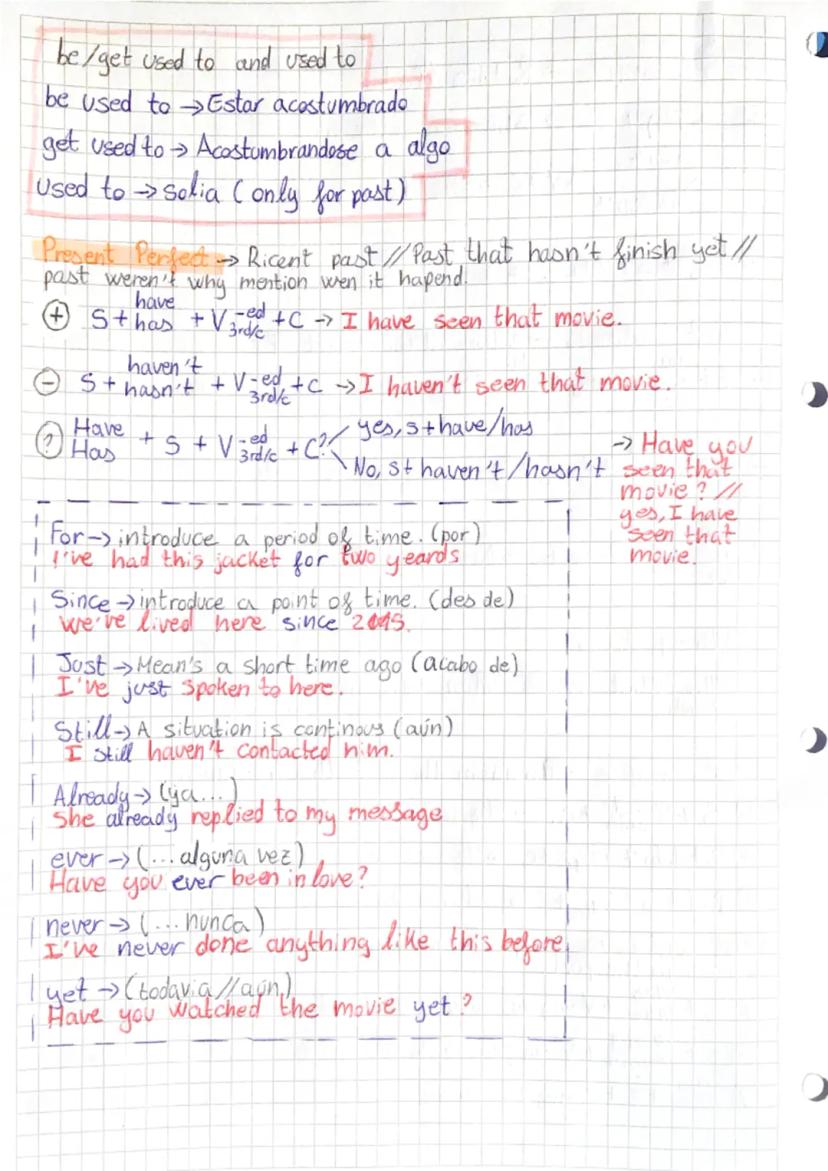 be/get used to and used to
be used to → Estar acostumbrado
get used to → Acostumbrandose a algo
used to → solia (only for past)
Present Perfect → Ricent past // Past that hasn't finish yet //
past weren't why mention wen it hapend.
have
+ S + has + V -ed 3rd/c + C → I have seen that movie.
haven't
- S + hasn't + V -ed 3rd/c + C → I haven't seen that movie.
? Have Has + S + V -ed 3rd/c + C? yes, s + have/has
No, s + haven't/hasn't
→ Have you
seen that
movie? //
yes, I have
seen that
movie.
For → introduce a period of time. (por)
I've had this jacket for two yeards
Since → introduce a point of time. (desde)
we've lived here since
Just → Mean's a short time ago (acabo de)
I've just spoken to here.
Still → A situation is continous (aún)
I still haven't contacted him.
Already → (ya...)
She already replied to my message
ever → (... alguna vez)
Have you ever been in love?
never → (... nunca)
I've never done anything like this before,
yet → (todavia // aún)
Have you watched the movie yet?